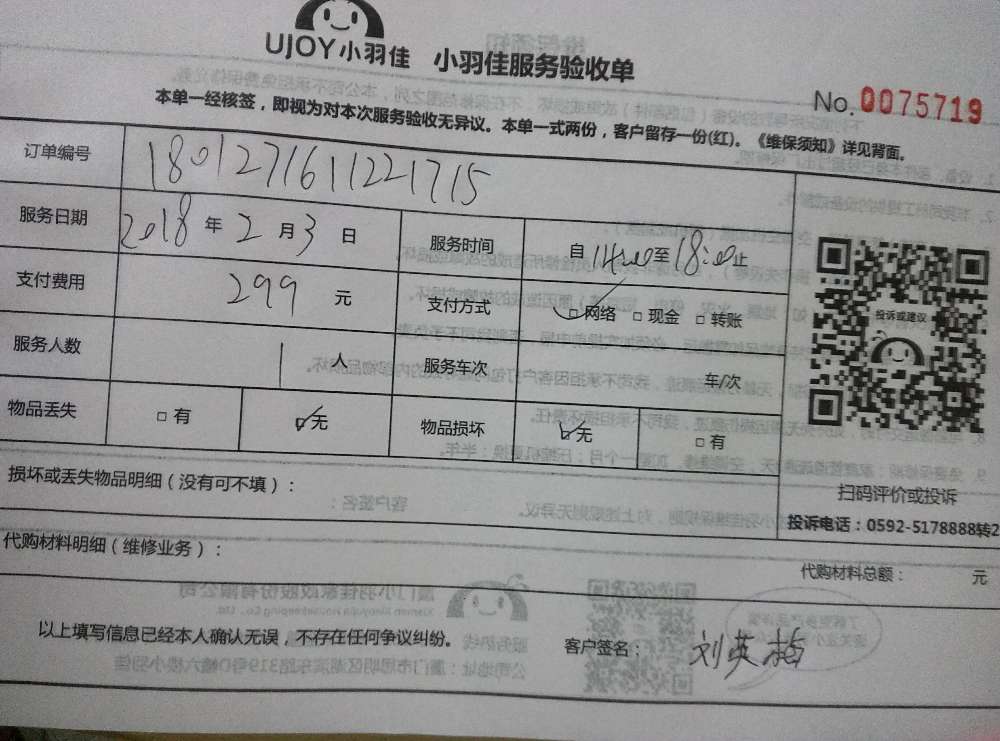 UJOY小羽佳 小羽佳服务验收单
No. 0075719
本单一经核签，即视为对本次服务验收无异议。本单一式两份，客户留存一份(红)。《维保须知》详见背面。
订单编号 180127161122171​5
服务日期 2018 年 2 月 3 日 服务时间 自 14:00 至 18:00 止
支付费用 299 元 支付方式 ☑网络 □现金 □转账
服务人数 1 人 服务车次 车/次
物品丢失 □有 ☑无 物品损坏 ☑无 □有
投诉或建议
扫码评价或投诉
投诉电话：0592-5178888转2
损坏或丢失物品明细（没有可不填）：
代购材料明细（维修业务）：
代购材料总额： 元
以上填写信息已经本人确认无误，不存在任何争议纠纷。 客户签名： 刘英梅